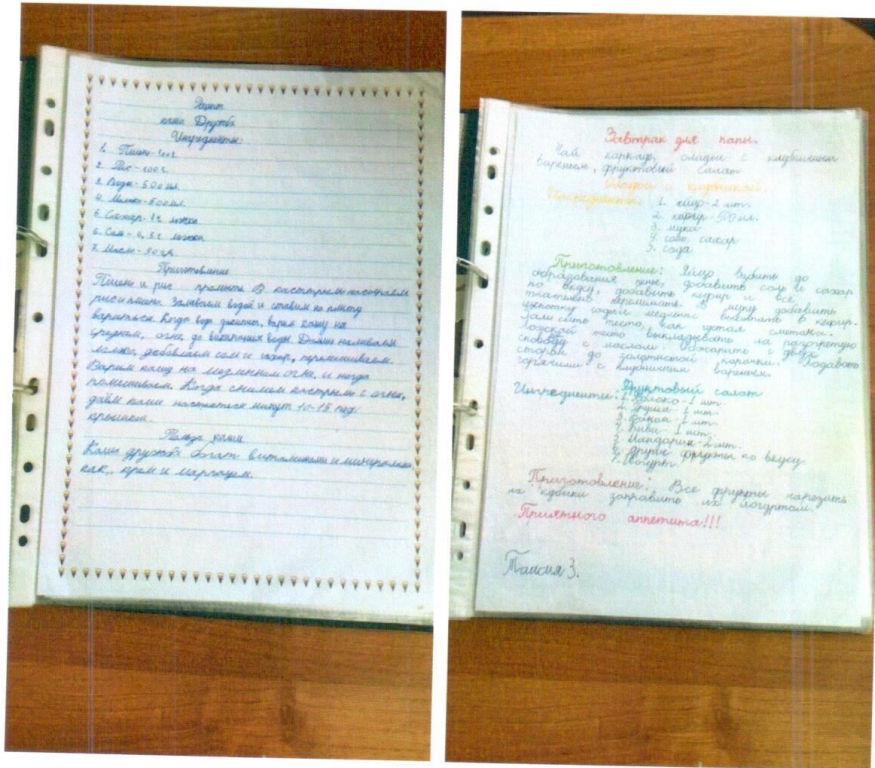 Рецепт
каши Дружба
Ингредиенты:
1. Пшено-100г.
2. Рис-100г.
3. Вода-500мл.
4. Молоко-500мл.
5. Сахар-1ч ложка
6. Соль-0,5ч ложки
7. Масло-
Приготовление
Пшено и рис промыть. В кастрюлю насыпаем
рис и пшено. Заливаем водой и ставим на плиту
вариться. Когда вода закипит, варим кашу на
среднем, огне до выкипания воды. Дальше наливаем
молоко, добавляем соль и сахар, перемешиваем.
Варим кашу на медленном огне, и иногда
помешиваем. Когда снимем кастрюлю с огня,
даём каше настояться минут 10-15 под
крышкой.
Польза каши
Каша дружба богат витаминами и
как, крем и марганцем.
Завтрак для папы.
Чай каркадэ, оладьи с клубничным
вареньем, фруктовый салат
Оладьи с клубникой.
Ингредиенты: 1. яйцо-2 шт.
2. кефир-500мл.
3. мука
4. соль, сахар
5. сода
Приготовление: Яйцо взбить до
образования пены, добавить соль и сахар
по вкусу, добавить кефир и все
тщательно перемешать. В муку добавить
щепотку соды и медленно всыпать в кефир.
Замесить тесто, как густая сметана.
Ложкой тесто выкладывать на разогретую
сковороду с маслом. Обжарить с двух
сторон до золотистой корочки. Подавать
горячими с клубничным вареньем.
Фруктовый салат
Ингредиенты: 1. Яблоко-1 шт.
2. Груша-1 шт.
3. Банан-1 шт.
4. Киви-1 шт.
5. Мандарин-2 шт.
6. Другие фрукты по вкусу
7. Йогурт.
Приготовление: Все фрукты нарезать
на кубики заправить их йогуртом.
Приятного аппетита!!!
Таисия З.